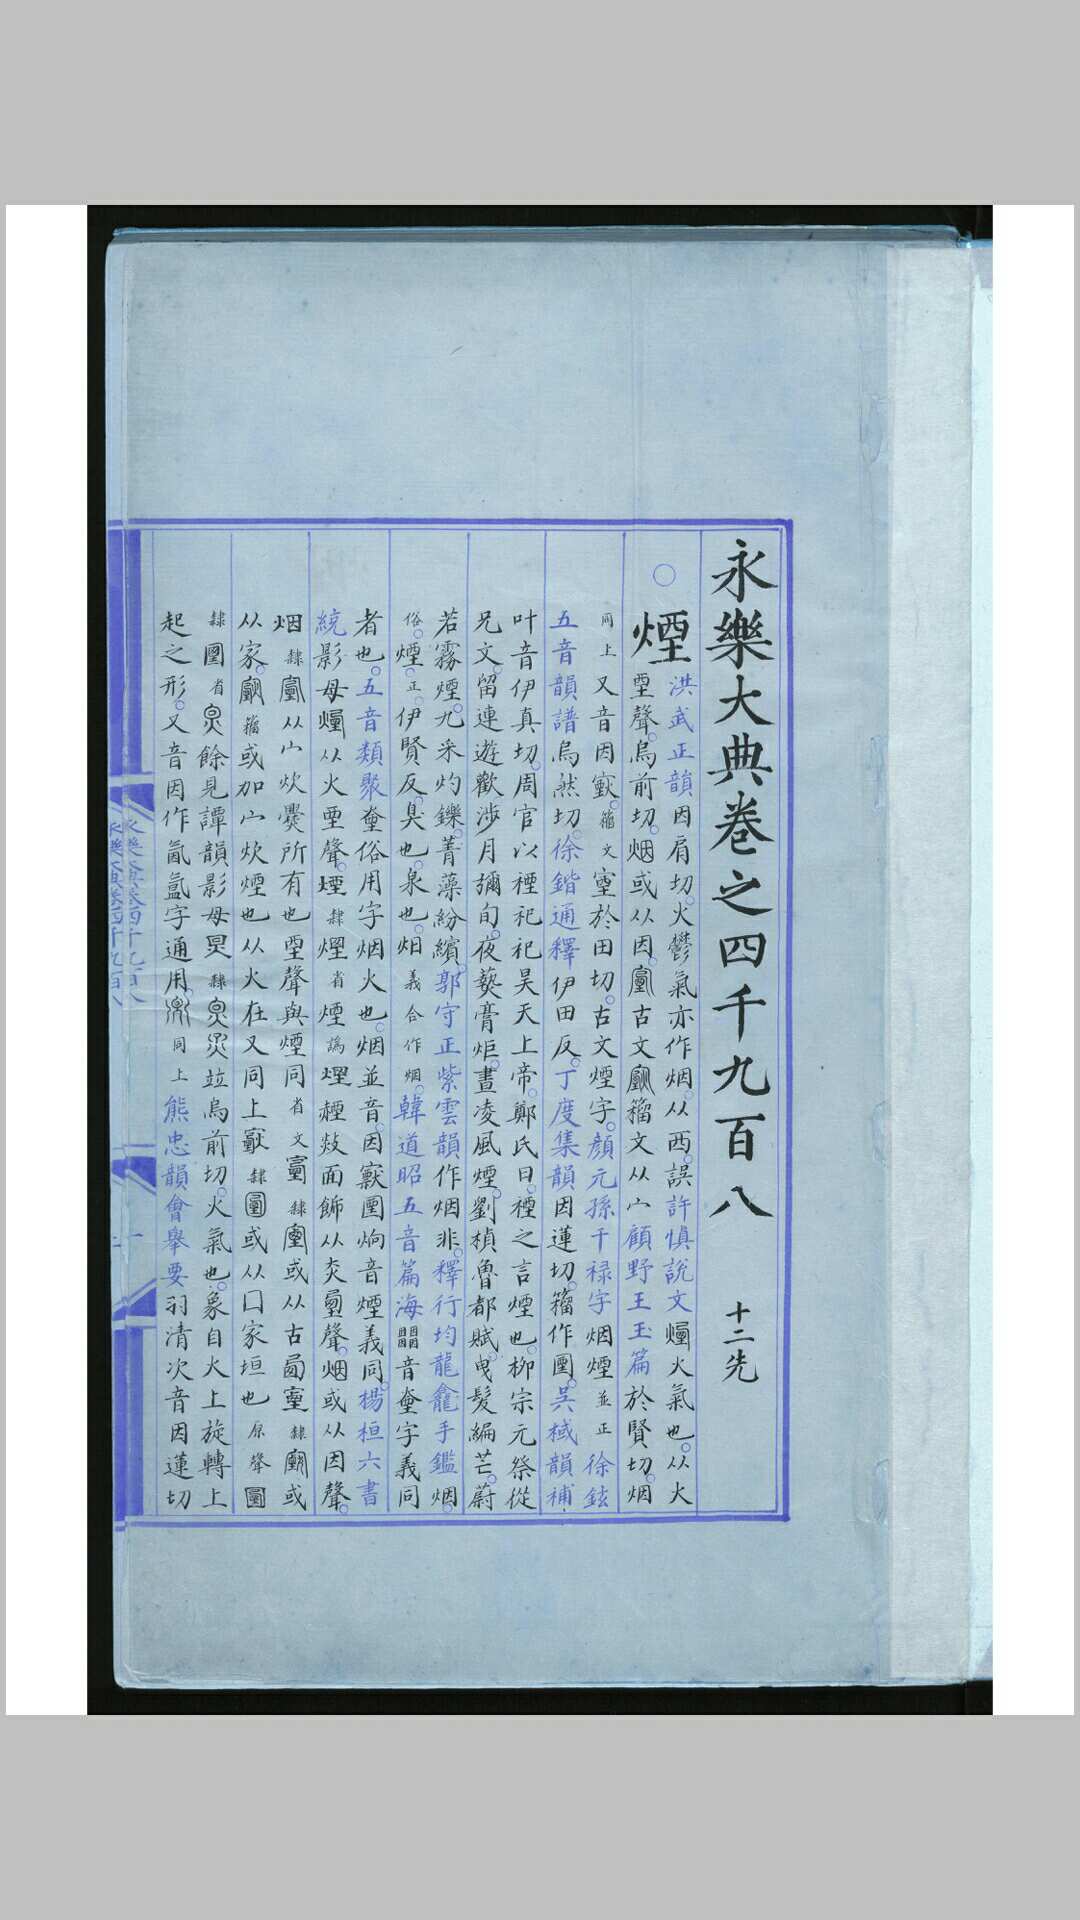 永樂大典卷之四千九百八　十二先
○煙
洪武正韻因肩切。火鬱氣亦作烟。从西誤許慎說文煙火氣也。从火
垔聲。烏前切。烟或从因。古文籀文从宀顧野王玉篇於賢切。烟
同上又音因籀文於田切。古文煙字。顏元孫干禄字烟煙並正徐鉉
五音韻譜烏然切。徐鍇通釋伊田反。丁度集韻因蓮切。籀作吳棫韻補
叶音伊真切。周官以禋祀祀昊天上帝。鄭氏曰。禋之言煙也。柳宗元祭從
兄文。留連遊歡涉月彌旬。夜爇膏炬。晝凌風煙。劉楨魯都賦。曳髮編芒。蔚
若霧煙。九采灼鑠。菁藻紛繽。郭守正紫雲韻作烟非。釋行均龍龕手鑑烟。
俗。煙。正。伊賢反。臭也。泉也。烟義合作烟。韓道昭五音篇海音字義同
者也。五音類聚俗用字烟火也。烟並音。因音煙義同。楊桓六書
統影母从火垔聲。隸煙省煙譌面飾从聲。烟或从因聲。
烟隸从宀炊爨所有也垔聲與煙同省文隸或从古隸或
从家。籀或加宀炊煙也从火在又同上隸或从囗家垣也原聲
隸省餘見譚韻影母隸竝烏前切。火氣也。象自火上旋轉上
起之形。又音因作氤氳字通用。同上熊忠韻會舉要羽清次音因蓮切
永樂大典卷四千九百八
一